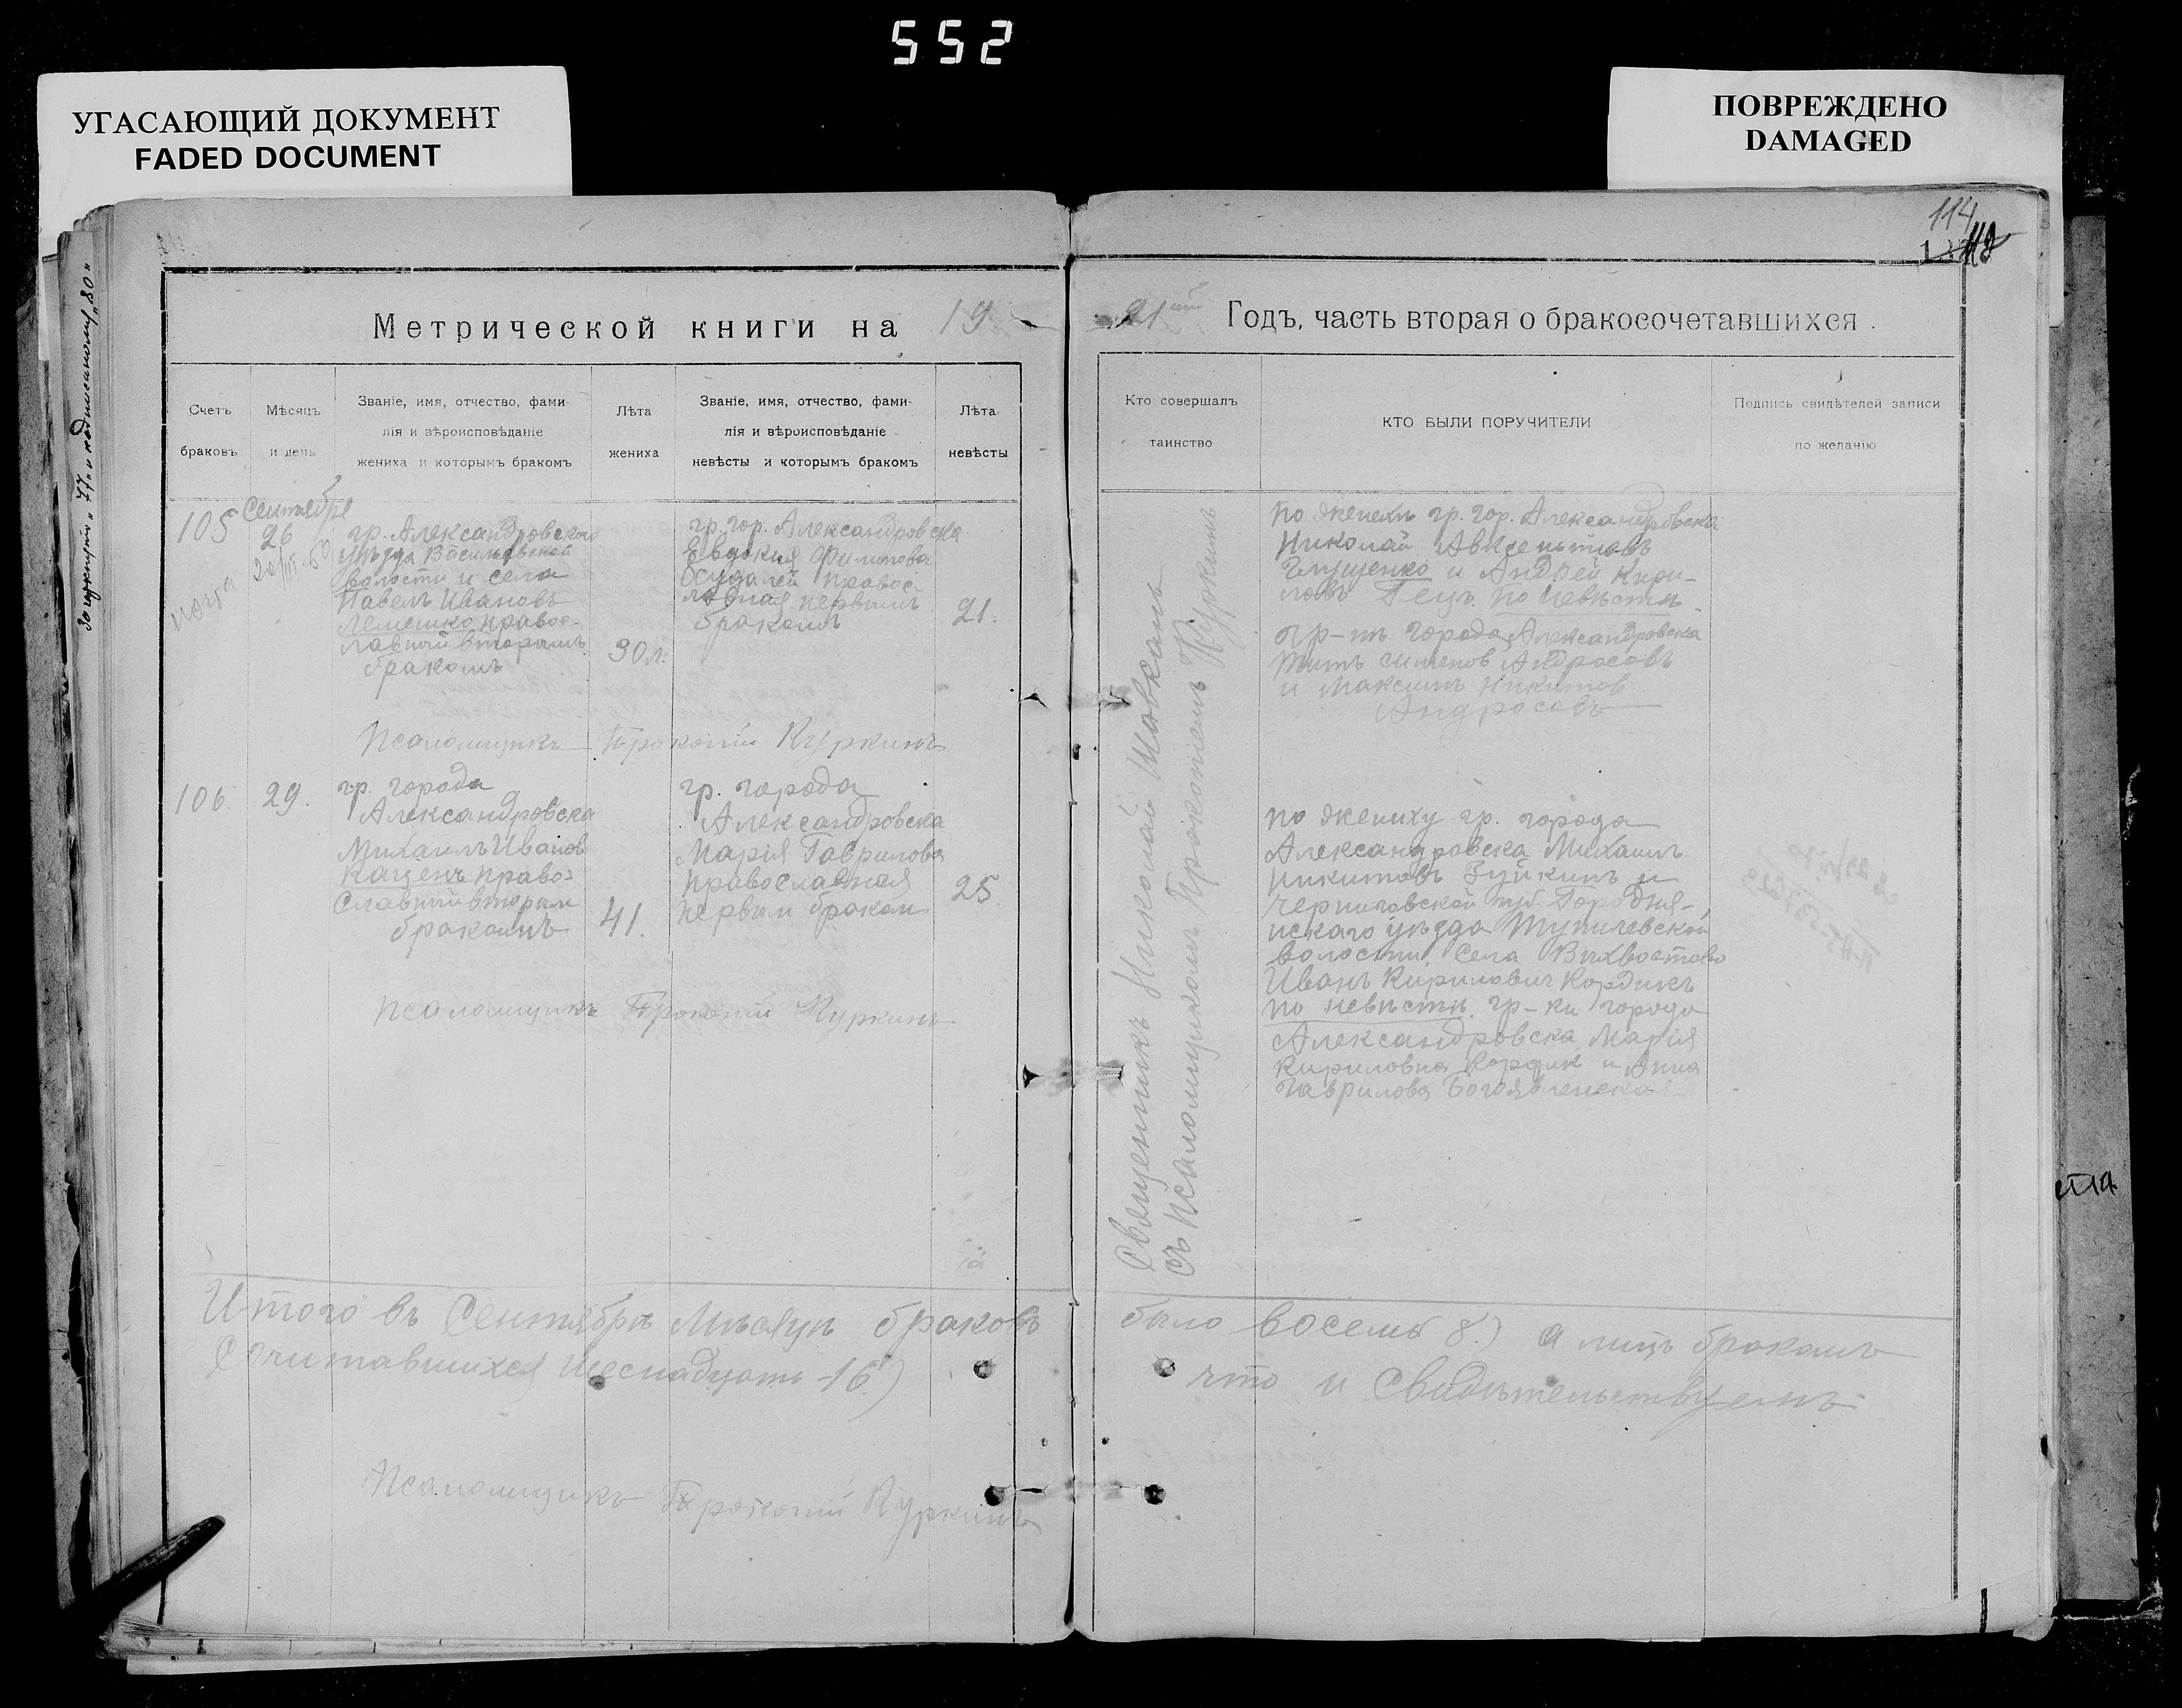 552
УГАСАЮЩИЙ ДОКУМЕНТ
FADED DOCUMENT
ПОВРЕЖДЕНО
DAMAGED
114
Метрической книги на 19
21ый Годъ, часть вторая о бракосочетавшихся.
Счетъ браковъ
Мѣсяцъ и день
Званіе, имя, отчество, фами-
лія и вѣроисповѣданіе
жениха и которымъ бракомъ
Лѣта жениха
Званіе, имя, отчество, фами-
лія и вѣроисповѣданіе
невѣсты и которымъ бракомъ
Лѣта невѣсты
Кто совершалъ
таинство
КТО БЫЛИ ПОРУЧИТЕЛИ
Подпись свидѣтелей записи
по желанію
105
Сентября
26
гр. Александровского
уѣзда Васильевской
волости и села
Павелъ Ивановъ
Лемешко правос-
лавный вторымъ
бракомъ
30 л.
гр. гор. Александровска
Евдокия Филипова
правос-
лавная первымъ
бракомъ
21.
Псаломщикъ Прокопий Куркинъ
106.
29.
гр. города
Александровска
Михаилъ Иванов
Каценъ право-
славный вторым
бракомъ
41.
гр. города
Александровска
Марія Гаврилова
православная
первым браком
25
Псаломщикъ Прокопій Куркинъ
Священникъ Николай
съ псаломщикомъ Прокопіемъ Куркинъ
по женихъ гр. гор. Александровска
Николай Авксентіевъ
Глущенко и Андрей Кири-
ловъ Гецъ. по невѣстѣ
гр-нъ города Александровска
Титъ Сименов Андросовъ
и Максимъ Никитов
Андросовъ
по жениху гр. города
Александровска Михаилъ
Никитовъ Зуйкинъ и
черниговской губ. Городня-
нскаго уѣзда Тупичевской
волости. Села Вихвостово
Иванъ Кирилович Кордикъ
по невѣстѣ. гр-ки города
Александровска Марія
Кириловна Кордик и Анна
Гаврилова Богоявленская
Итого въ Сентябрѣ Мѣсяцѣ браковъ было восемь 8.) а лицъ бракомъ
Сочитавшихся шеснадцать 16.) что и Свидѣтельствуемъ
Псаломщикъ Прокопій Куркинъ